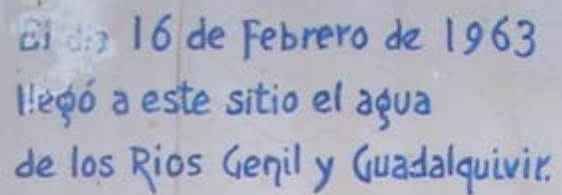 El dia 16 de Febrero de 1963
llegó a este sitio el agua
de los Rios Genil y Guadalquivir.